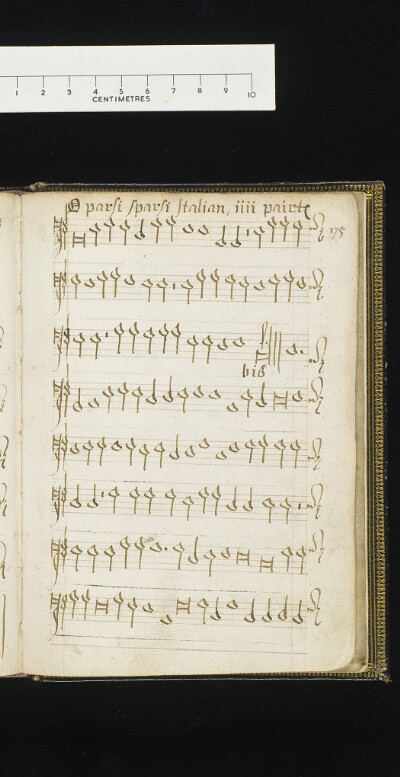 1 2 3 4 5 6 7 8 9 10
CENTIMETRES
O parsi sparsi Italian, iiii pairte
175
bis